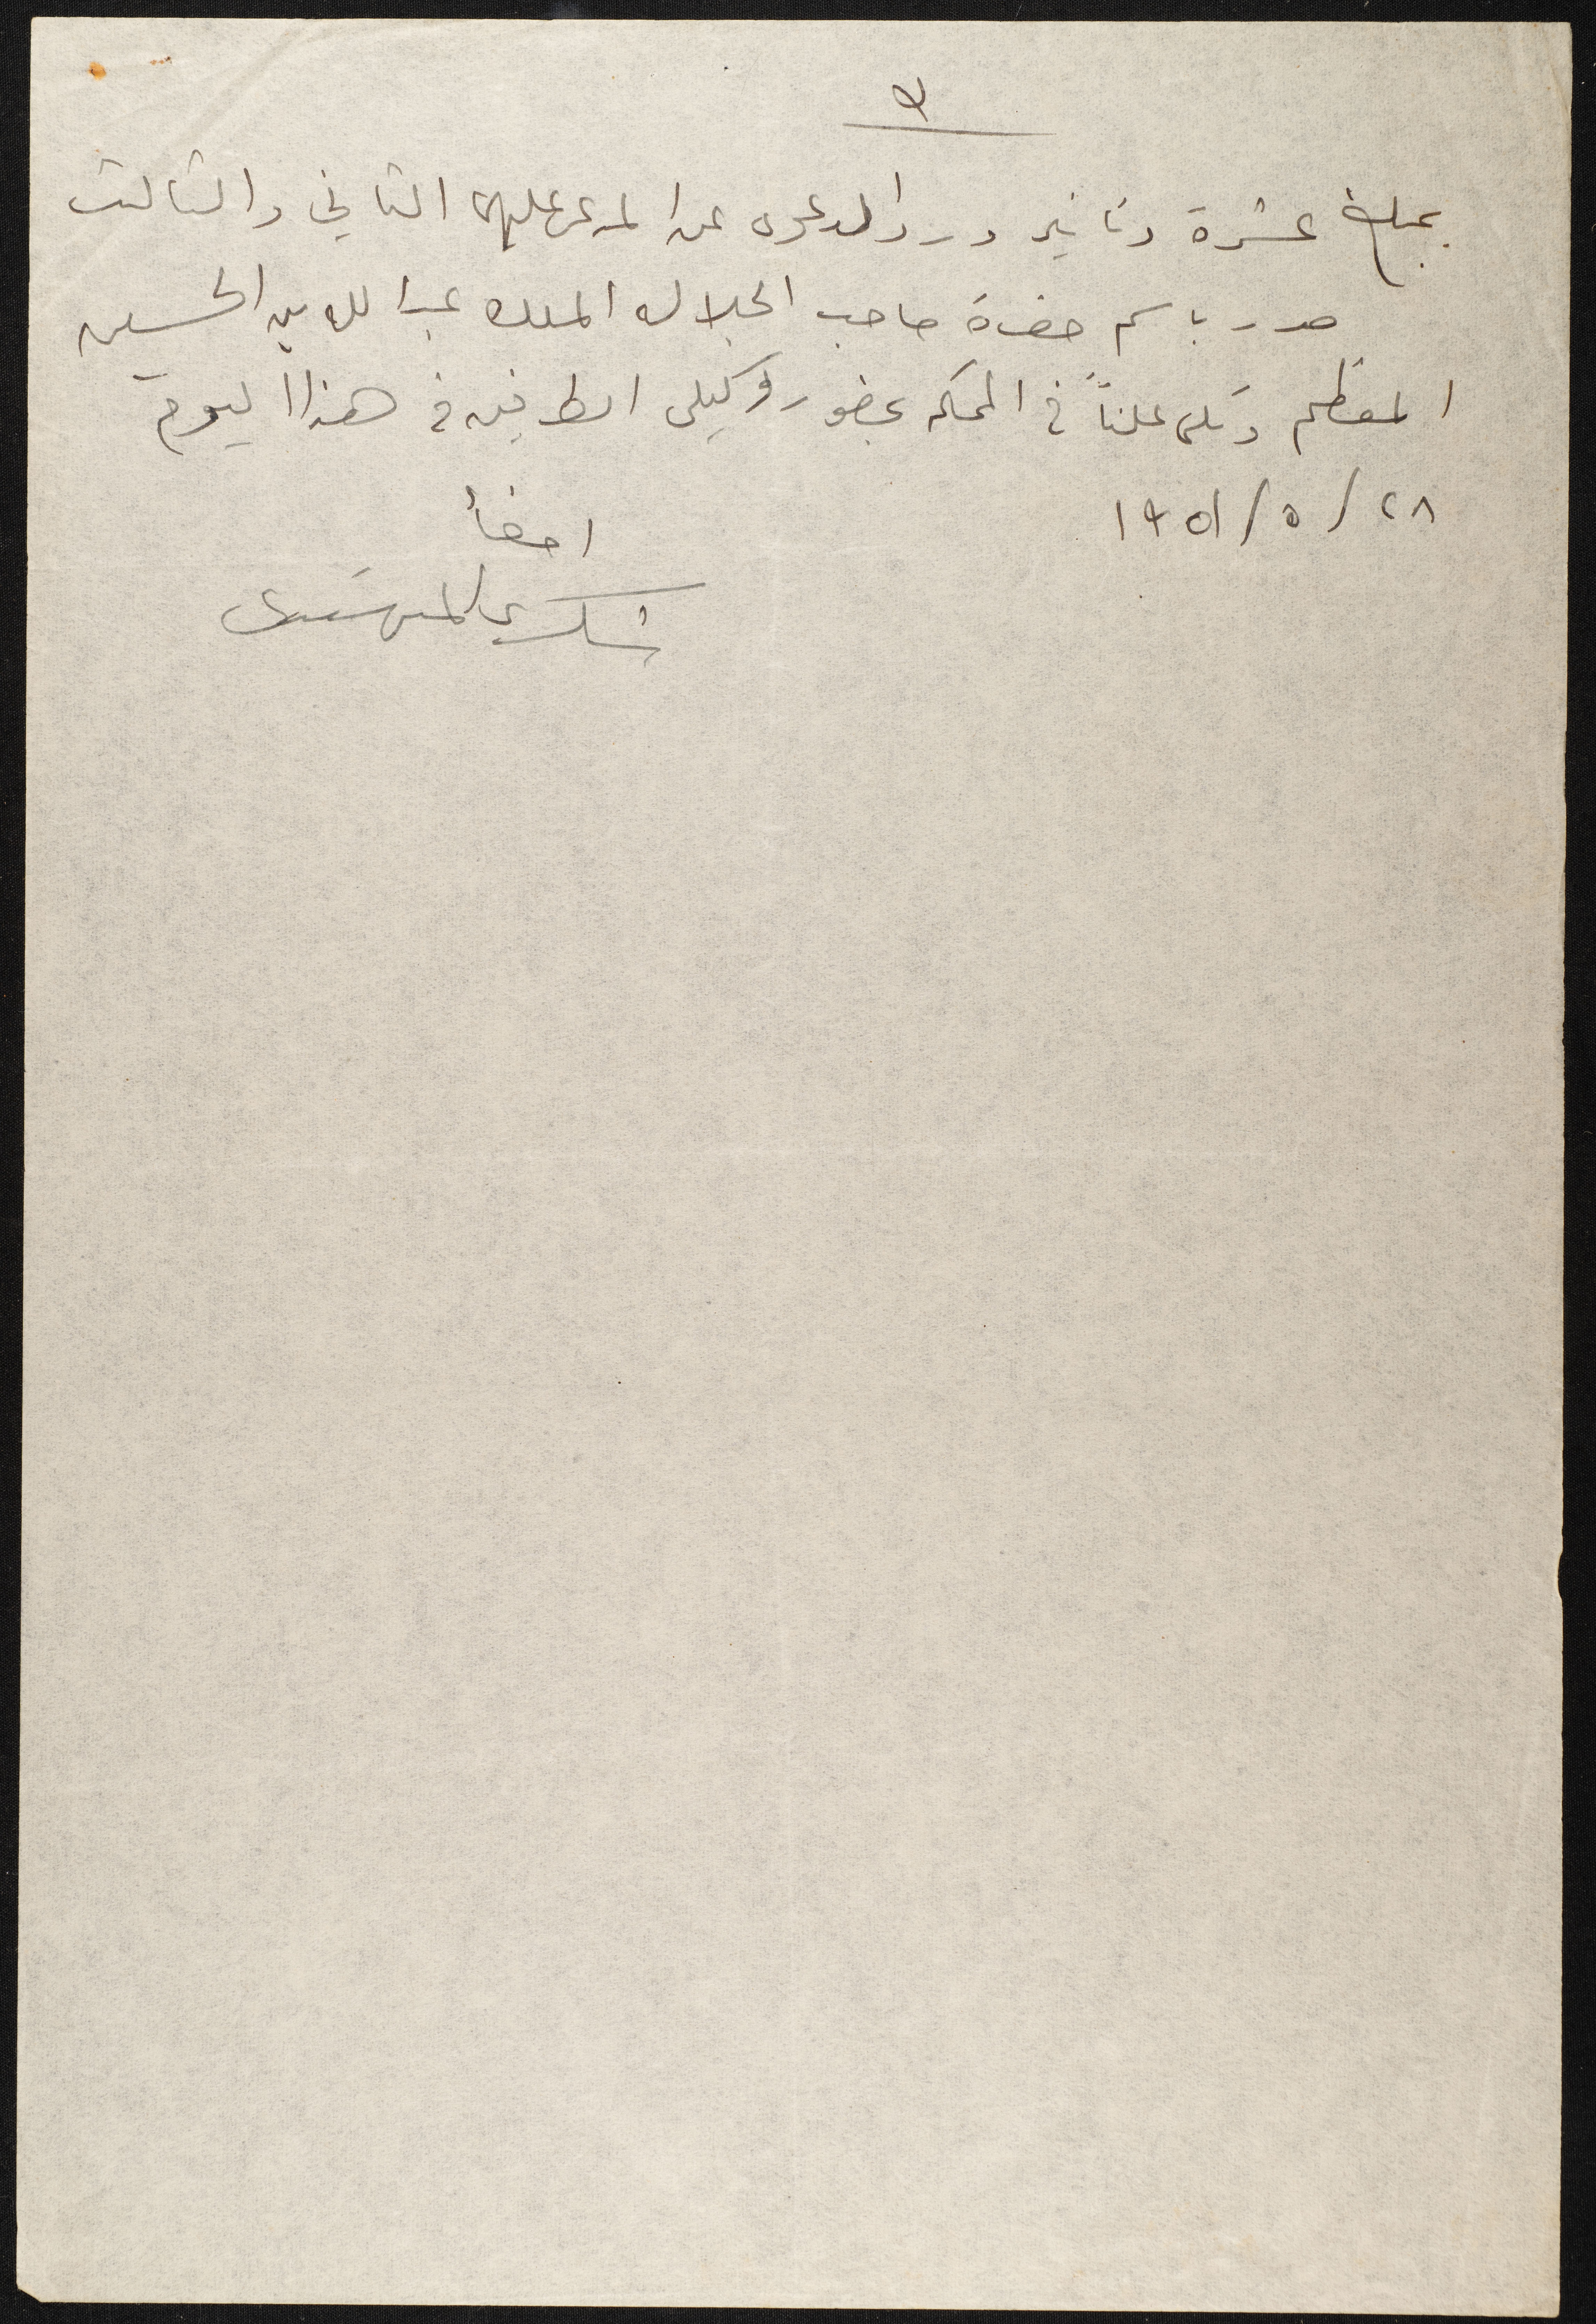 ٩
بمبلغ عشرة دنانير ورد الدعوى عن المدعى عليهما الثاني والثالث
صدر باسم حضرة صاحب الجلالة الملك عبد الله بن الحسين
المعظم وتلى علناً في المحكمة بحضور وكيلي الطرفين في هذا اليوم
٢٨/٥/١٩٥١
امضاء
شكري المهتدي